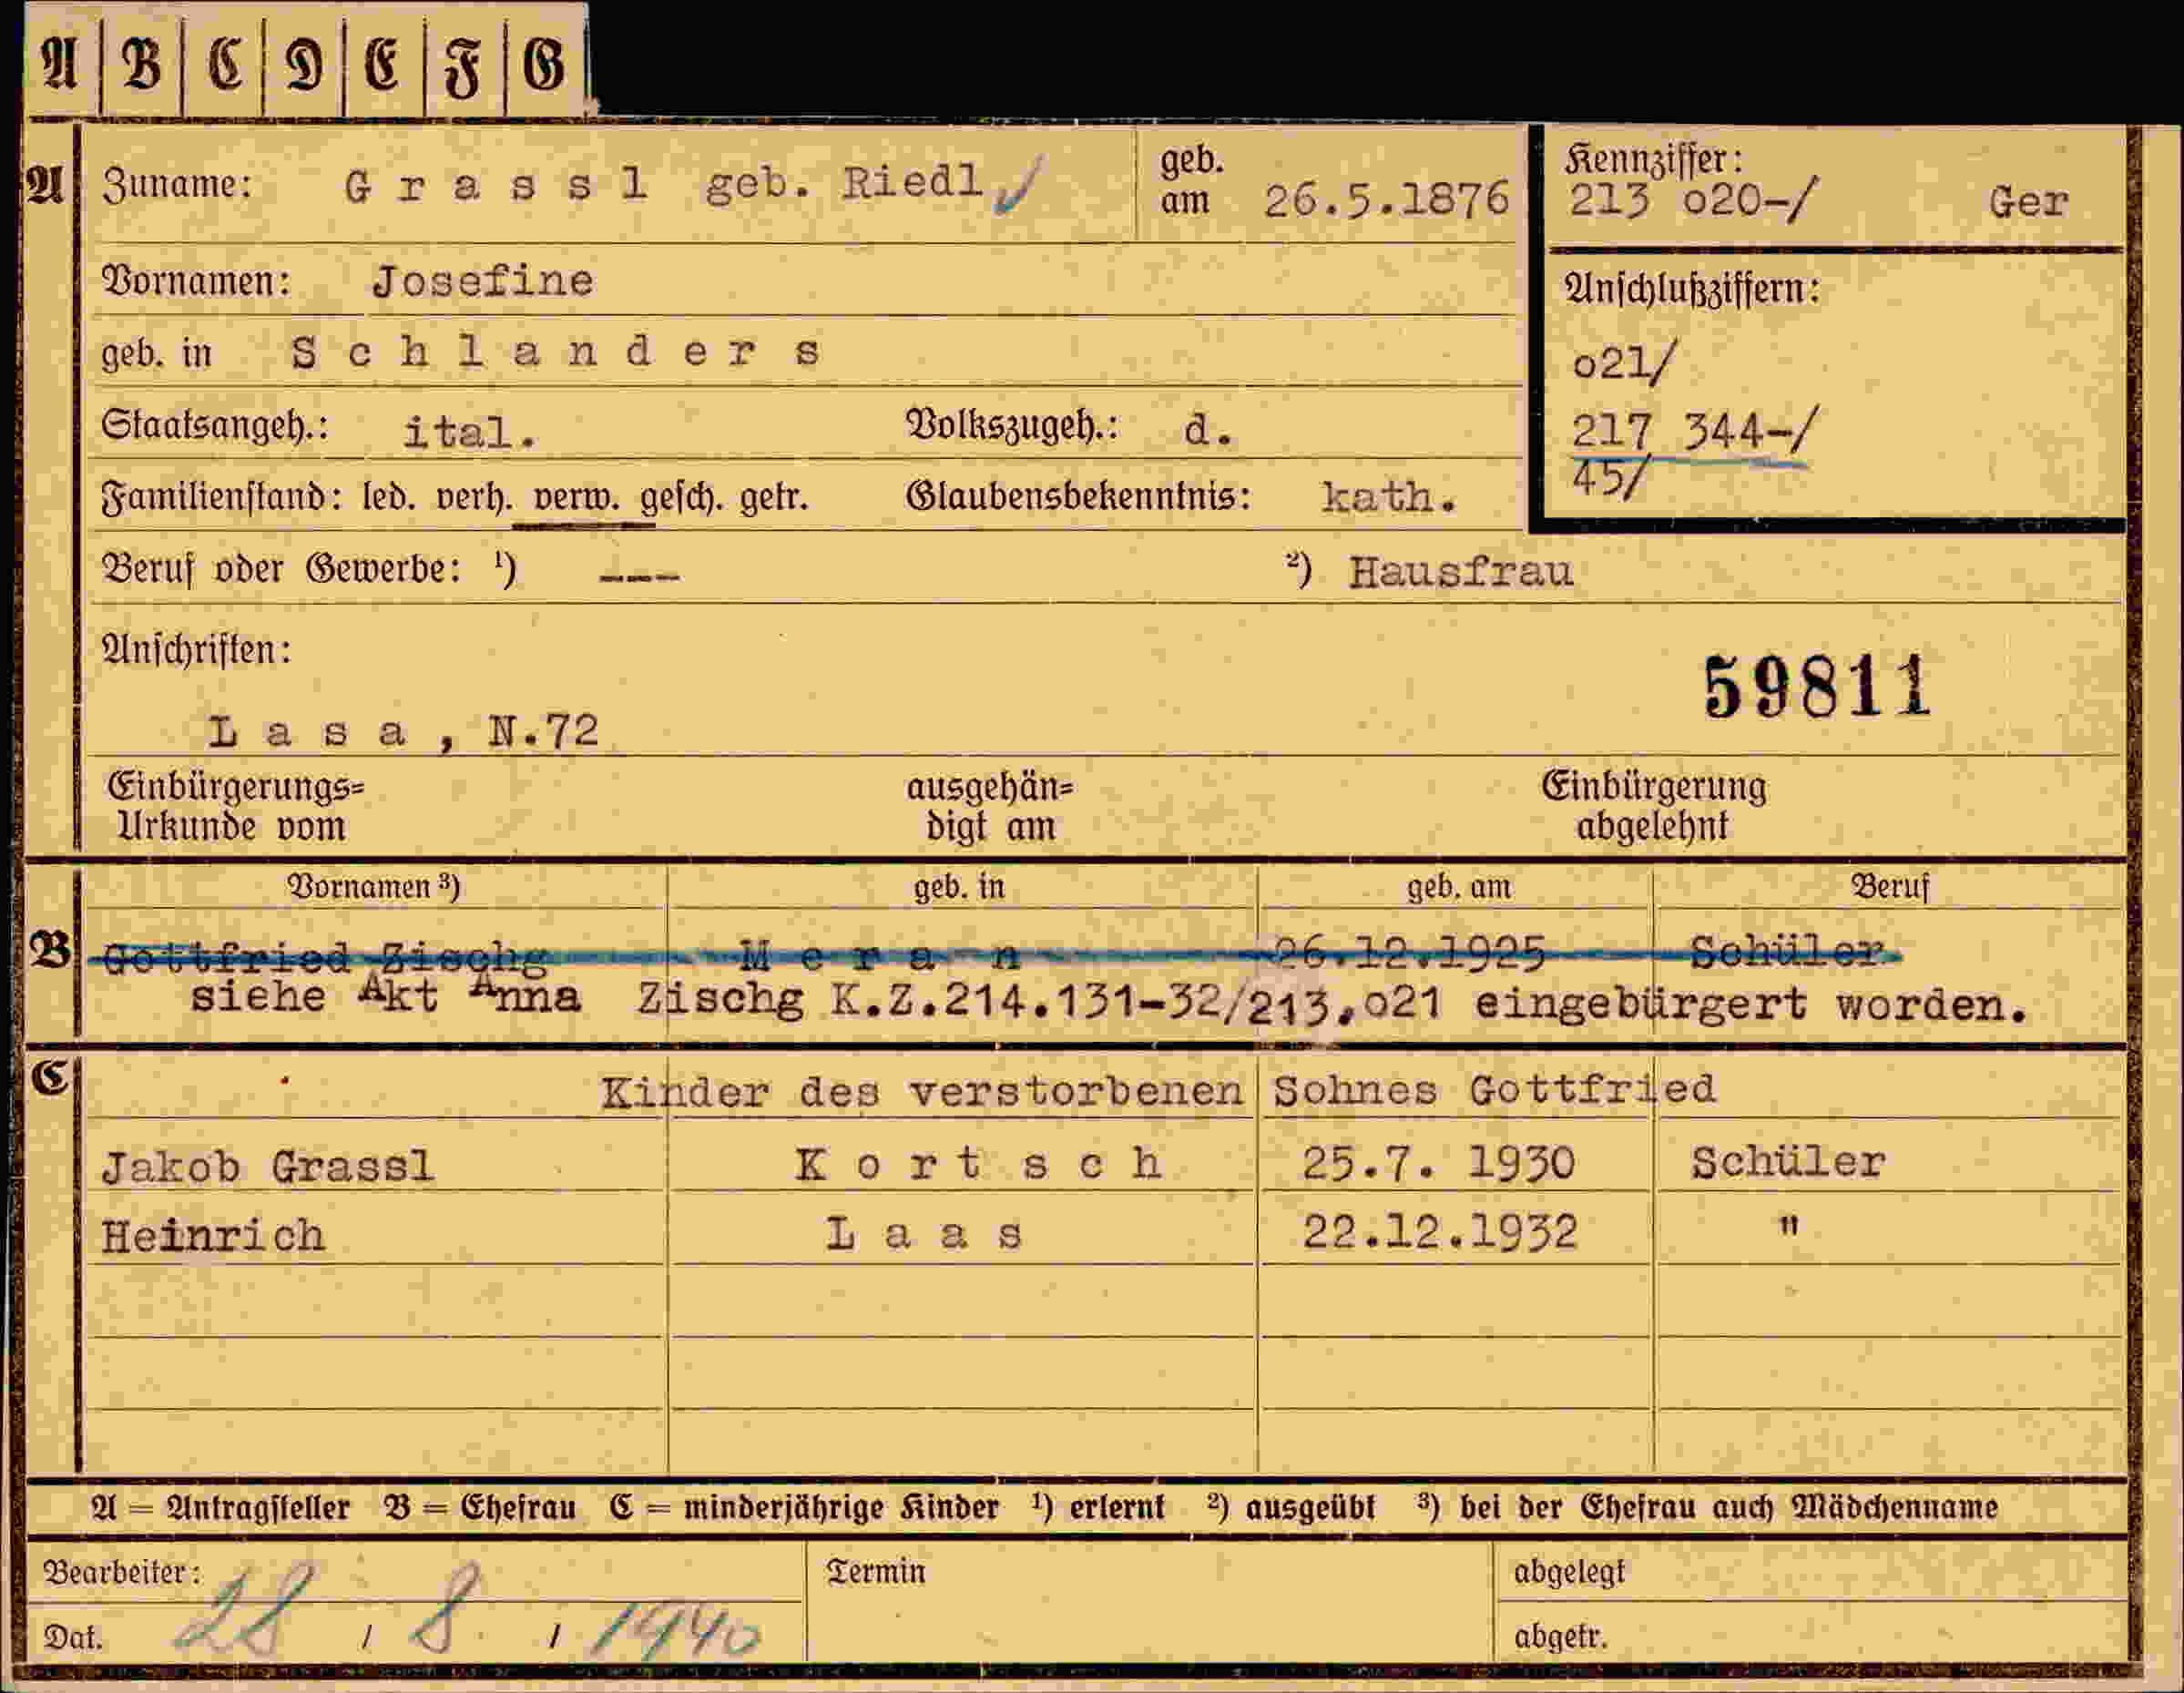 A B C D E F G
A Zuname: Grassl geb. Riedl geb. am 26.5.1876 Kennziffer: 213 o20-/ Ger
Vornamen: Josefine Anschlußziffern:
geb. in Schlanders o21/
Staatsangeh.: ital. Volkszugeh.: d. 217 344-/
Familienstand: led. verh. verw. gesch. getr. Glaubensbekenntnis: kath. 45/
Beruf oder Gewerbe: ¹) --- ²) Hausfrau
Anschriften:
59811
Lasa, N.72
Einbürgerungs= ausgehän= Einbürgerung
Urkunde vom digt am abgelehnt
Vornamen ³) geb. in geb. am Beruf
B Gottfried Zischg Meran 26.12.1925 Schüler
siehe Akt Anna Zischg K.Z.214.131-32/213.o21 eingebürgert worden.
C Kinder des verstorbenen Sohnes Gottfried
Jakob Grassl Kortsch 25.7. 1930 Schüler
Heinrich Laas 22.12.1932 "
A = Antragsteller B = Ehefrau C = minderjährige Kinder ¹) erlernt ²) ausgeübt ³) bei der Ehefrau auch Mädchenname
Bearbeiter: Termin abgelegt
Dat. 28 / 8 / 1940 abgetr.